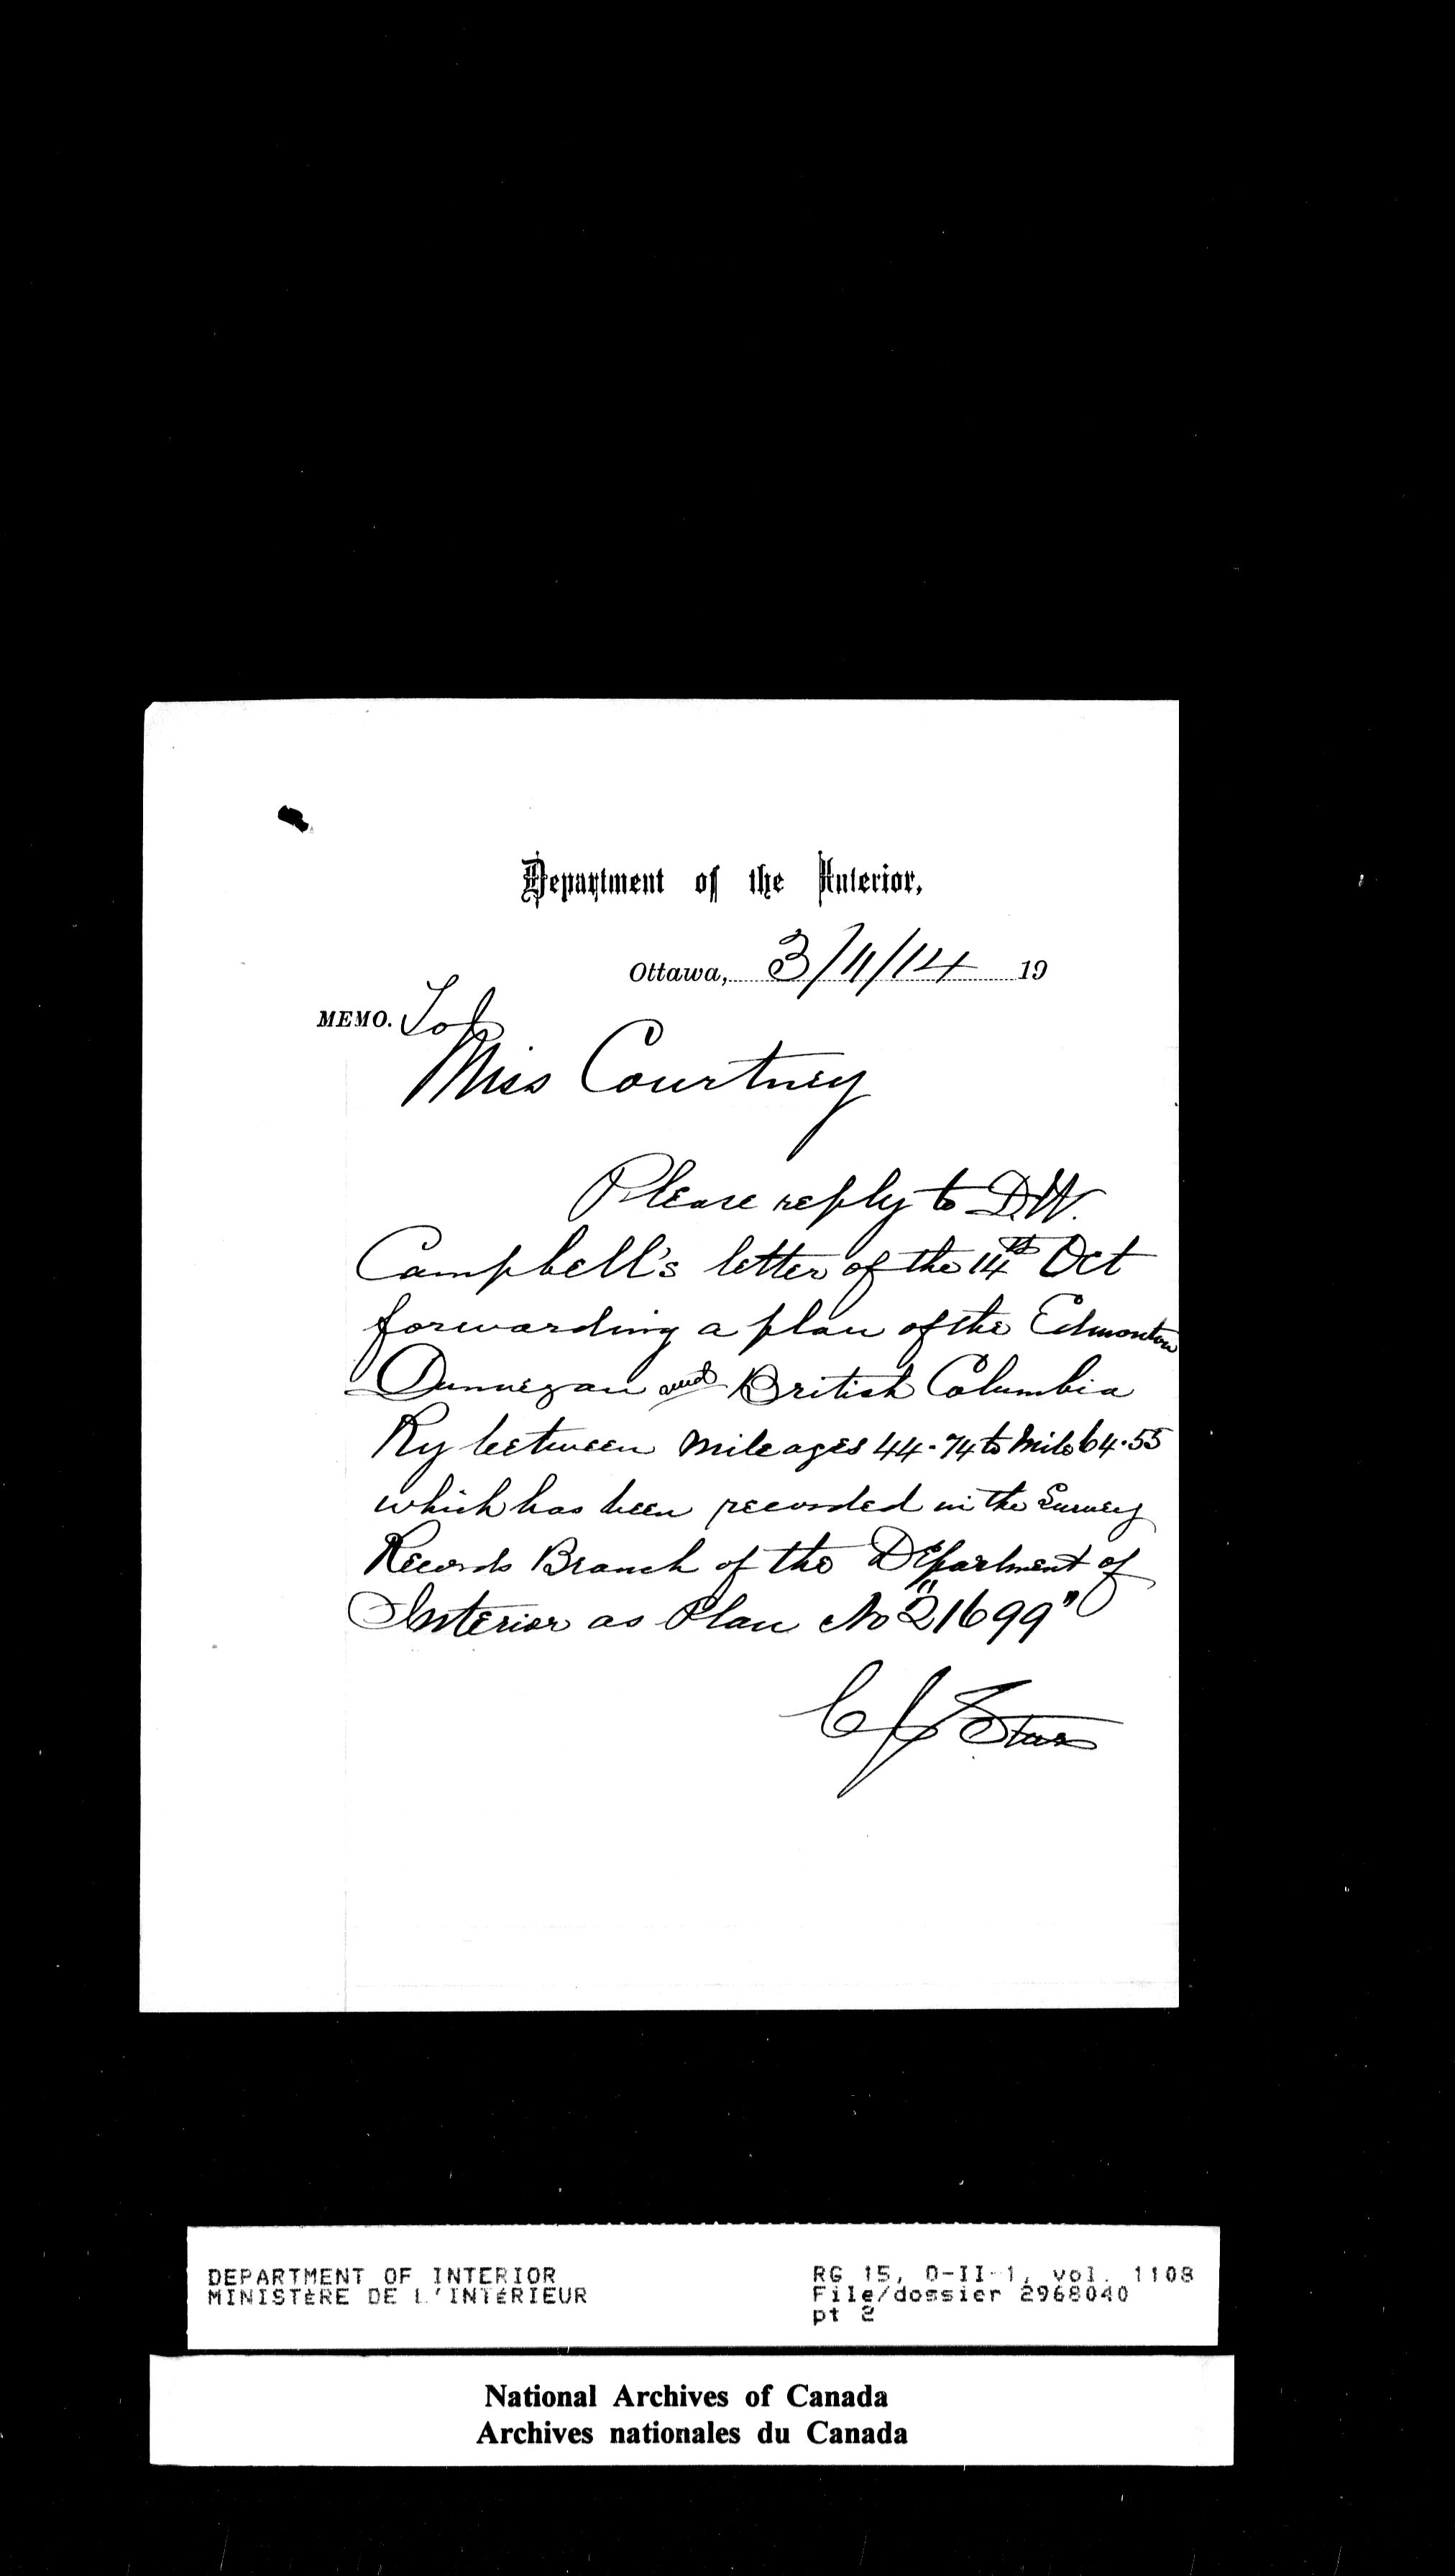 Department of the Interior,
Ottawa, 3/11/14 19
MEMO. To
Miss Courtney
Please reply to D.W.
Campbell's letter of the 14th Oct
forwarding a plan of the Edmonton
Dunvegan and British Columbia
Ry between mileages 44.74 to Mile 64.55
which has been recorded in the Survey
Records Branch of the Department of
Interior as Plan No "21699"
C J
DEPARTMENT OF INTERIOR
MINISTÈRE DE L'INTÉRIEUR
RG 15, D-II-1, vol. 1108
File/dossier 2968040
pt 2
National Archives of Canada
Archives nationales du Canada